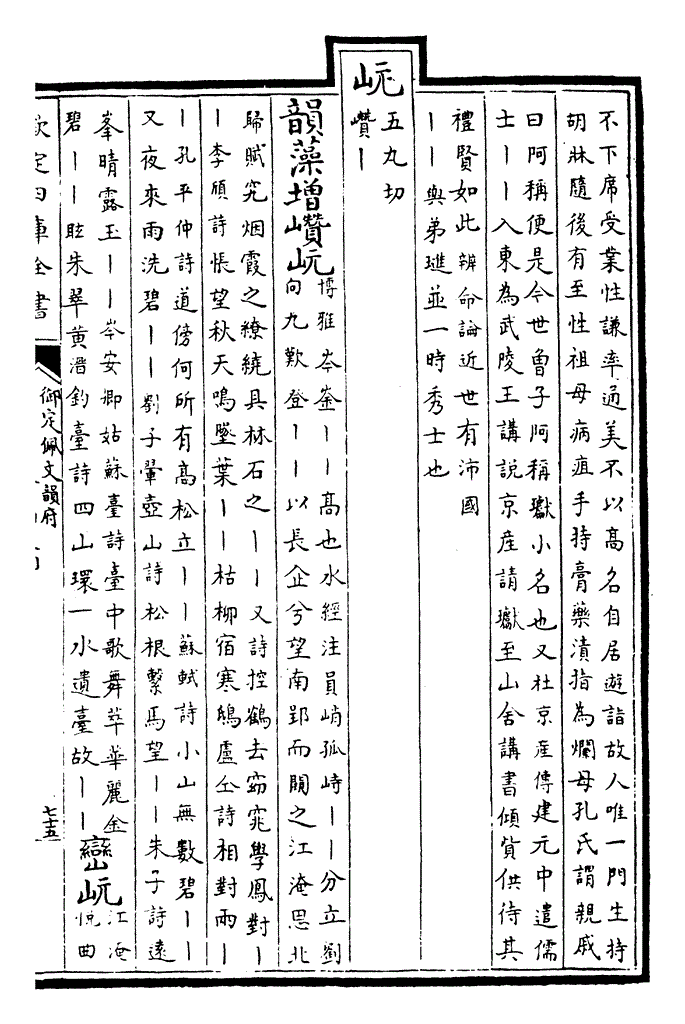 不下席受業性謙率通美不以高名自居遊詣故人唯一門生持
胡牀隨後有至性祖母病疽手持膏藥漬指為爛母孔氏謂親戚
曰阿稱便是今世曾子阿稱瓛小名也又杜京産傳建元中遣儒
士丨丨入東為武陵王講説京産請瓛至山舍講書傾貲供待其
禮賢如此辨命論近世有沛國
丨丨與弟璡並一時秀士也
岏
五丸切
巑丨
韻藻增巑岏
博雅岑崟丨丨高也水經注員峭孤峙丨丨分立劉
向九歎登丨丨以長企兮望南郢而闚之江淹思北
歸賦究烟霞之繚繞具林石之丨丨又詩控鶴去窈窕學鳳對丨
丨李頎詩悵望秋天鳴墜葉丨丨枯柳宿寒鴟盧仝詩相對兩丨
丨孔平仲詩道傍何所有高松立丨丨蘇軾詩小山無數碧丨丨
又夜來雨洗碧丨丨劉子翬壺山詩松根繫馬望丨丨朱子詩遠
峯晴露玉丨丨岑安卿姑蘇臺詩臺中歌舞萃華麗金
碧丨丨眩朱翠黄溍釣臺詩四山環一水遺臺故丨丨
巒岏
江淹
悦曲
欽定四庫全書
御定佩文韻府
七十五